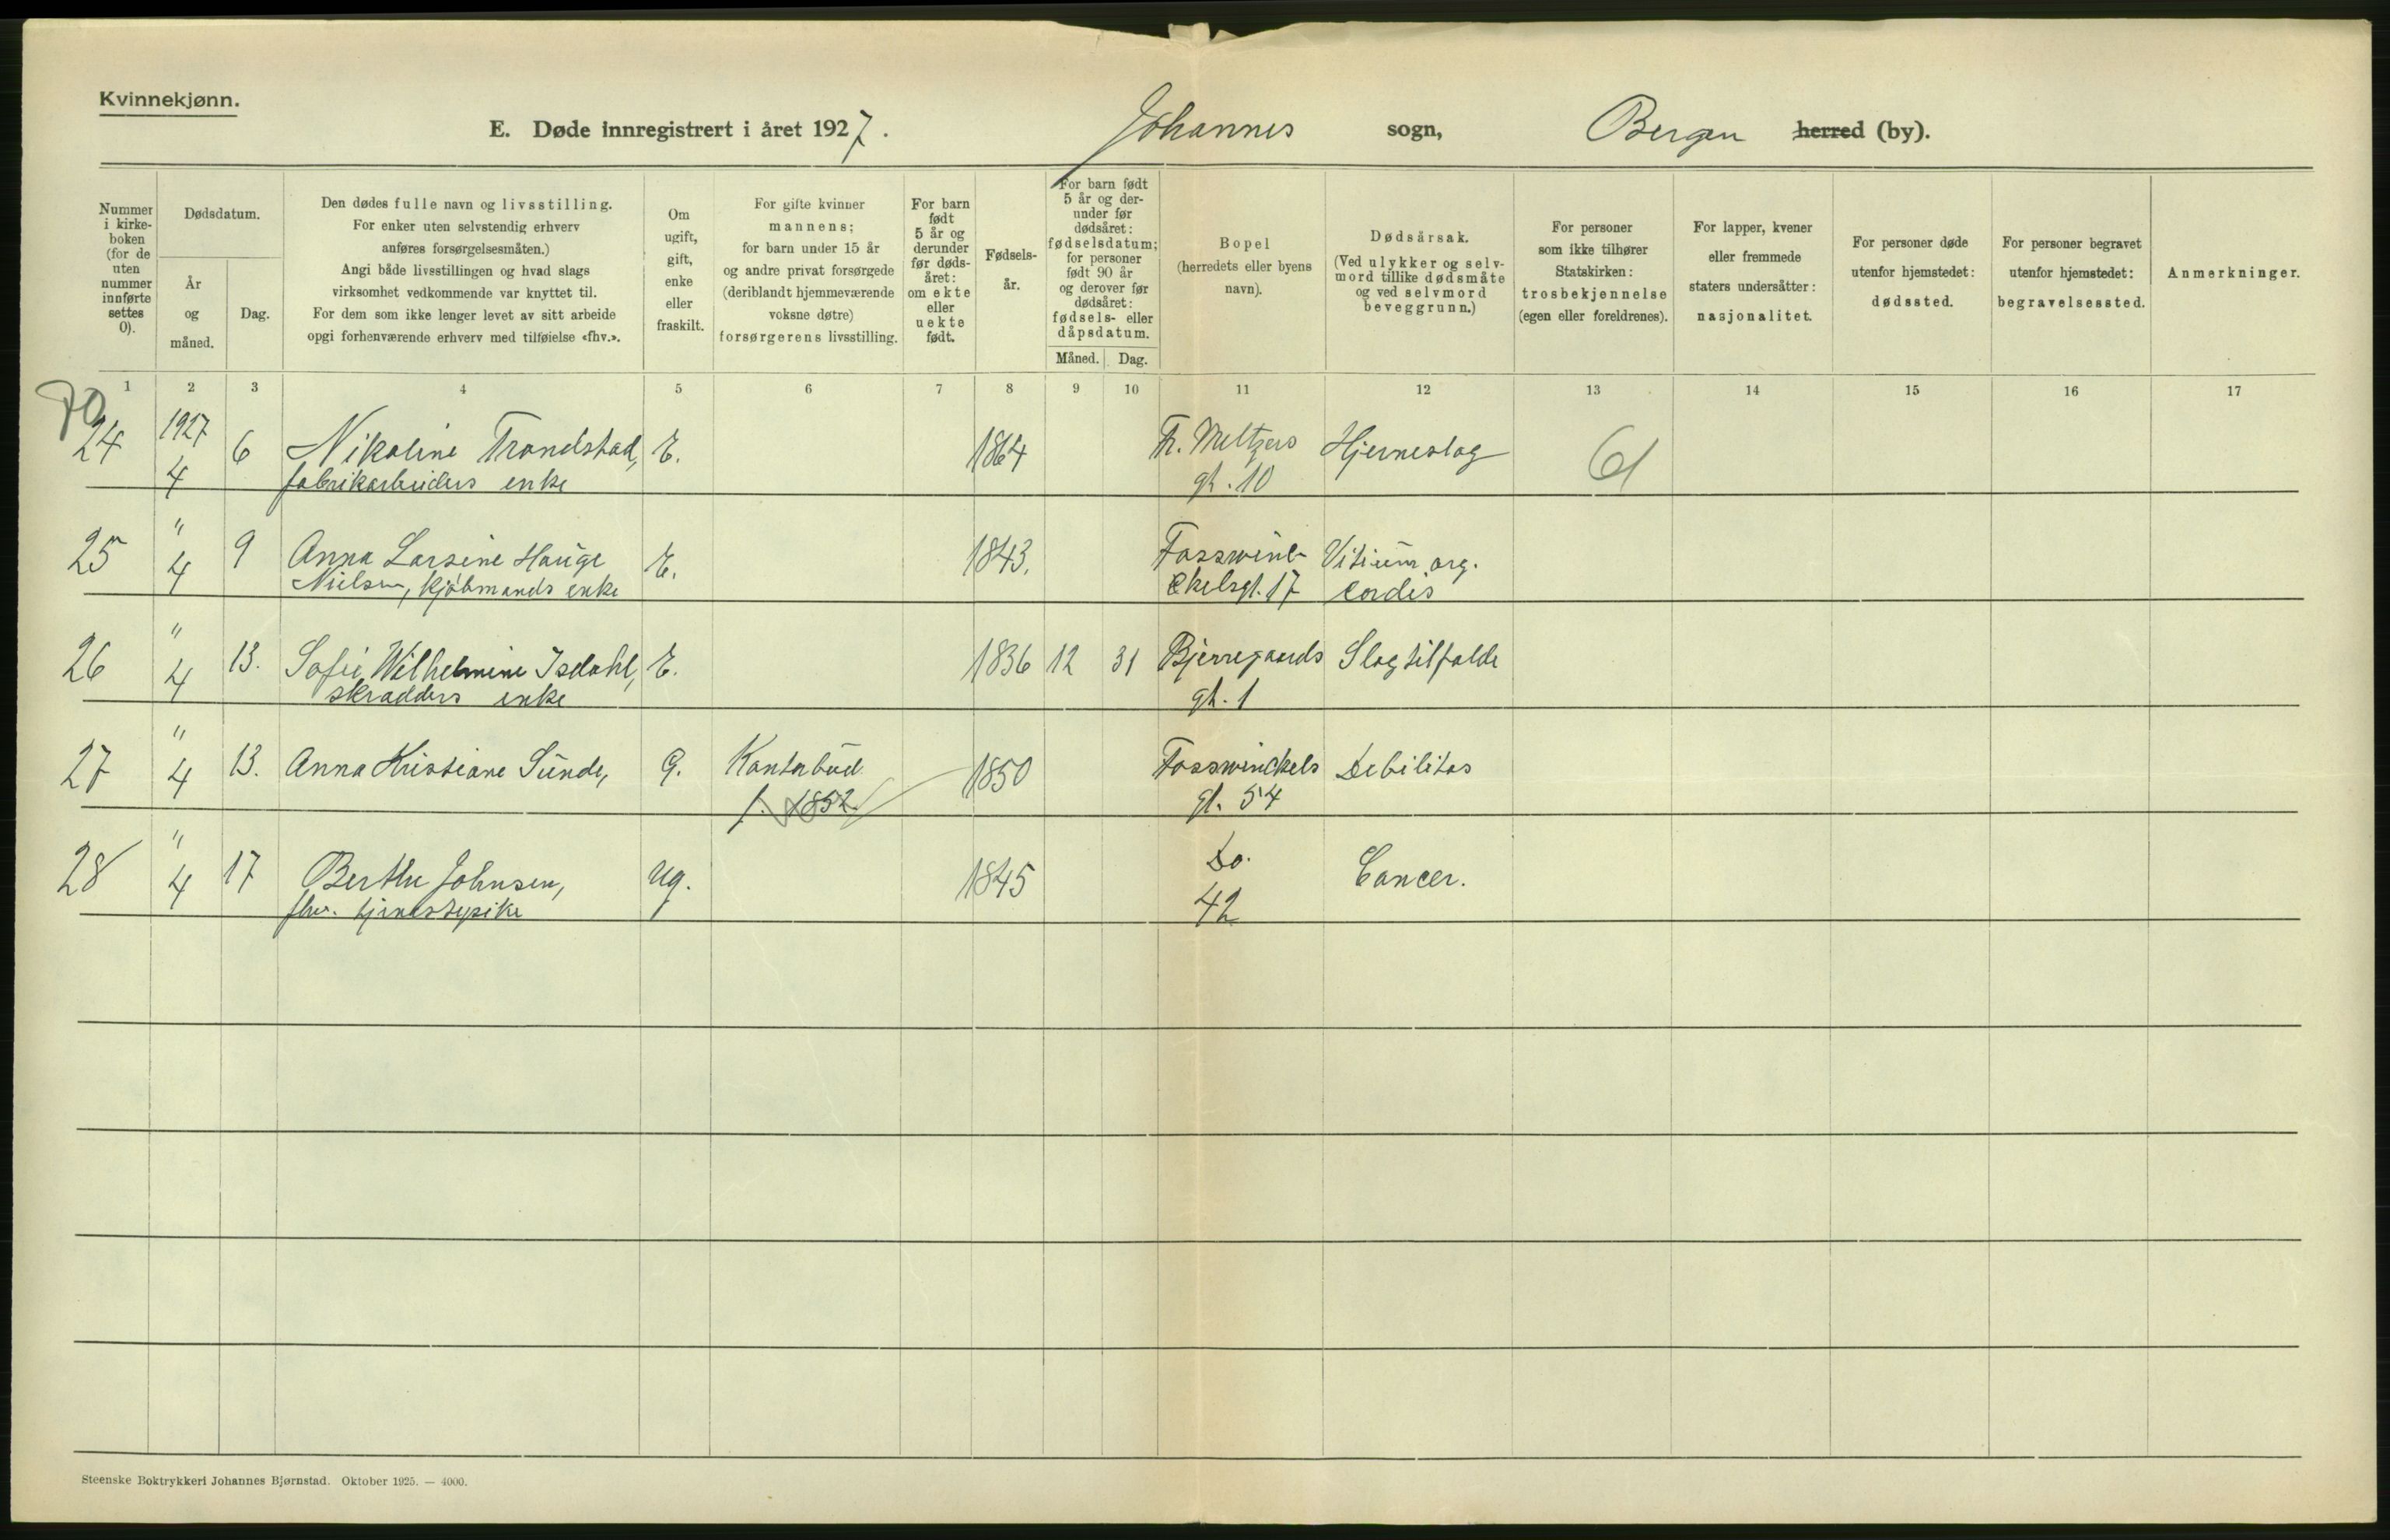 Kvinnekjønn.
E. Døde innregistrert i året 1927. Johannes sogn, Bergen herred (by).
Nummer i kirkeboken (for de uten nummer innførte settes 0).
Dødsdatum.
År og måned.
Dag.
Den dødes fulle navn og livsstilling.
For enker uten selvstendig erhverv
anføres forsørgelsesmåten.)
Angi både livsstillingen og hvad slags
virksomhet vedkommende var knyttet til.
For dem som ikke lenger levet av sitt arbeide
opgi forhenværende erhverv med tilføielse «fhv.».
Om ugift, gift, enke eller fraskilt.
For gifte kvinner
mannens;
for barn under 15 år
og andre privat forsørgede
(deriblandt hjemmeværende
voksne døtre)
forsørgerens livsstilling.
For barn født 5 år og derunder før dødsåret: om ekte eller uekte født.
Fødselsår.
For barn født 5 år og derunder før dødsåret: fødselsdatum; for personer født 90 år og derover før dødsåret: fødsels- eller dåpsdatum.
Måned. Dag.
Bopel
(herredets eller byens
navn).
Dødsårsak.
(Ved ulykker og selvmord tillike dødsmåte og ved selvmord beveggrunn.)
For personer
som ikke tilhører
Statskirken:
trosbekjennelse
(egen eller foreldrenes).
For lapper, kvener
eller fremmede
staters undersåtter:
nasjonalitet.
For personer døde
utenfor hjemstedet:
dødssted.
For personer begravet
utenfor hjemstedet:
begravelsessted.
Anmerkninger.
1 2 3 4 5 6 7 8 9 10 11 12 13 14 15 16 17
70
24 1927 4 6 Nikoline Trondstad, E. 1864 Fr. Meltzers Hjerneslag
fabrikarbeiders enke gt. 10
61
25 " 4 9 Anna Larsine Hauge E. 1843. Fosswinc- Vitium org.
Nielsen, kjøbmands enke ckelsgt. 17 cordis
26 " 4 13. Sofie Wilhelmine Isdahl, E. 1836 12 31 Bjerregaards Slagtilfælde
skrædders enke gt. 1
27 " 4 13. Anna Kristiane Sunde, G. Kontorbud 1850 Fosswinckels Debilitas
f. 1852. gt. 54
28 " 4 17 Berthe Johnsen, Ug. 1845 Do. Cancer.
fhv. tjenestepike 42
Steenske Boktrykkeri Johannes Bjørnstad. Oktober 1925. — 4000.